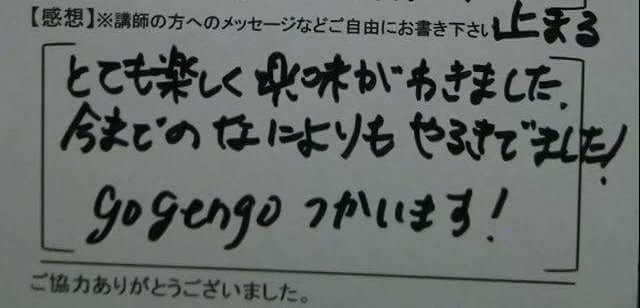 【感想】※講師の方へのメッセージなどご自由にお書き下さい
止まる
とても楽しく興味がわきました.
今までのなによりもやるきでました!
gogengo つかいます!
ご協力ありがとうございました。